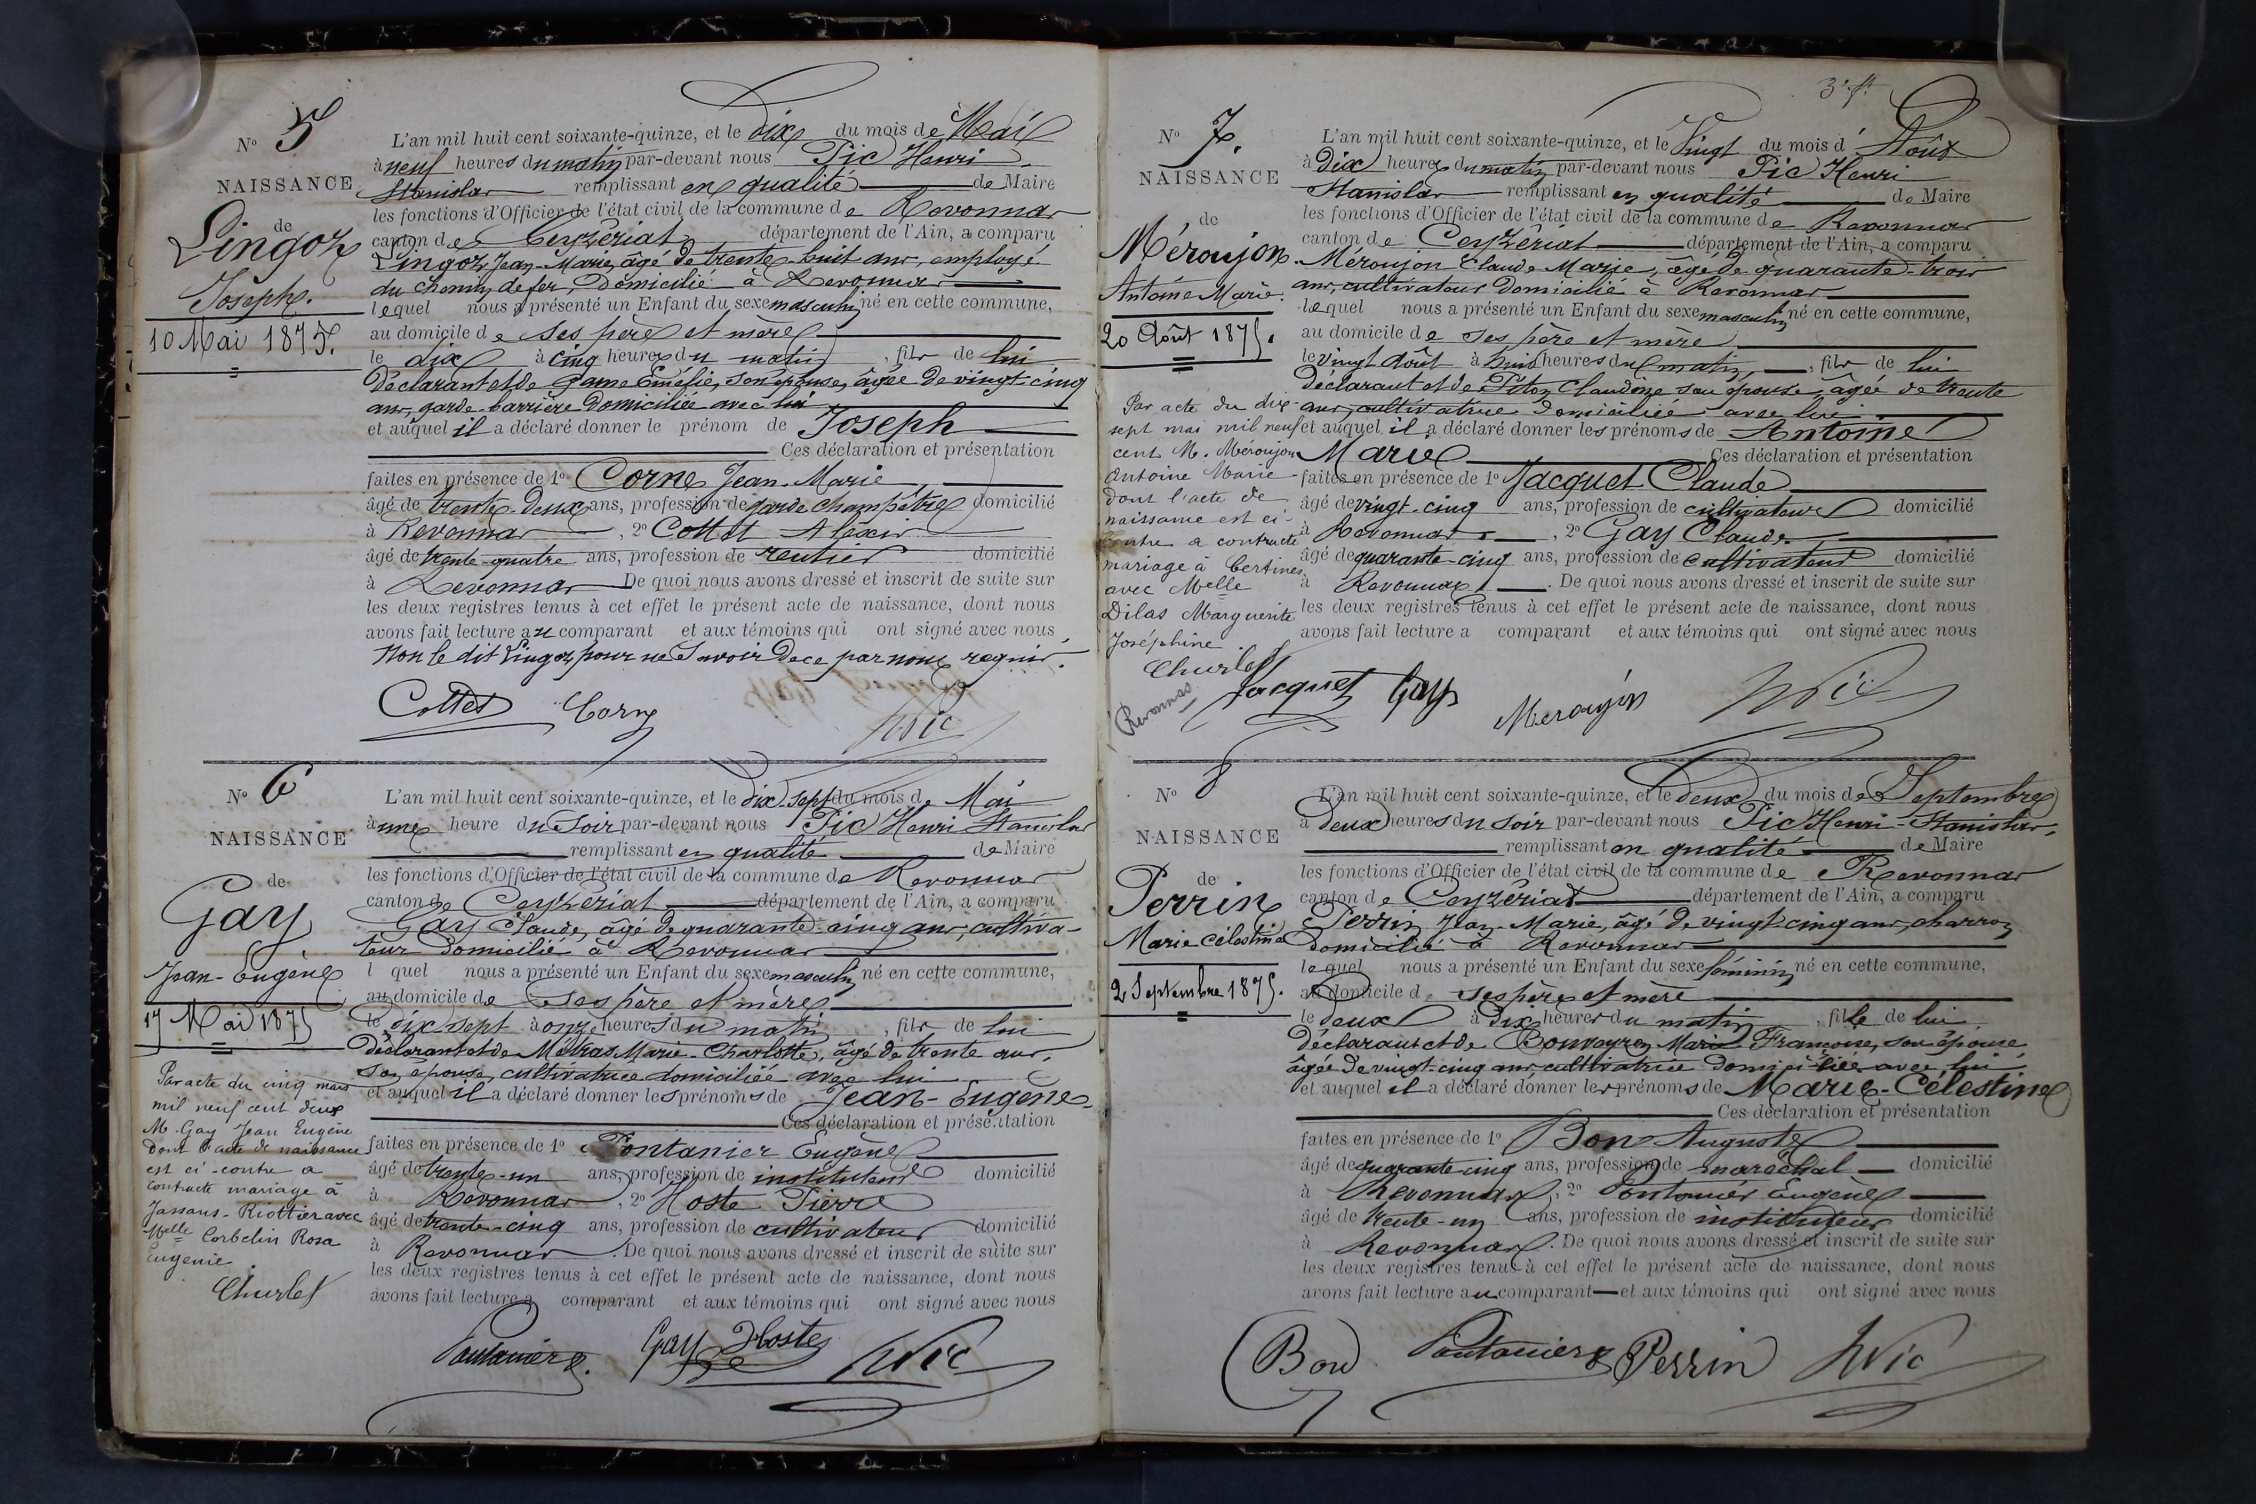 No 5
NAISSANCE
de
Lingoz
Joseph.
10 Mai 1875.
L'an mil huit cent soixante-quinze, et le dix du mois de Mai
à neuf heures du matin par-devant nous Pic Henri
Stanislas remplissant en qualité de Maire
les fonctions d'Officier de l'état civil de la commune de Revonnas
canton de Ceyzériat département de l'Ain, a comparu
Lingoz Jean-Marie, âgé de trente-huit ans, employé
du chemin de fer, domicilié à Revonnas
lequel nous a présenté un Enfant du sexe masculin né en cette commune,
au domicile de ses père et mère
le dix à cinq heures du matin, fils de lui
déclarant et de Emélie, son épouse, âgée de vingt-cinq
ans, garde-barrière domiciliée avec lui
et auquel il a déclaré donner le prénom de Joseph
Ces déclaration et présentation
faites en présence de 1o Corne Jean-Marie,
âgé de trente-deux ans, profession de garde champêtre domicilié
à Revonnas, 2o Cottet Alexis
âgé de trente-quatre ans, profession de rentier domicilié
à Revonnas De quoi nous avons dressé et inscrit de suite sur
les deux registres tenus à cet effet le présent acte de naissance, dont nous
avons fait lecture au comparant et aux témoins qui ont signé avec nous,
Non le dit Lingoz pour ne savoir de ce par nous requis.
Cottet Corne HPic
No 6
NAISSANCE
de
Gay
Jean-Eugène
17 Mai 1875
Par acte du cinq mars
mil neuf cent deux
M. Gay Jean Eugène
dont l'acte de naissance
est ci-contre a
contracté mariage à
Jassans-Riottier avec
Melle Corbelin Rosa
Eugénie.
Churlet
L'an mil huit cent soixante-quinze, et le dix-sept du mois de Mai
à une heure du soir par-devant nous Pic Henri Stanislas
remplissant en qualité de Maire
les fonctions d'Officier de l'état civil de la commune de Revonnas
canton de Ceyzériat département de l'Ain, a comparu
Gay Claude, âgé de quarante-cinq ans, cultiva-
teur domicilié à Revonnas
l quel nous a présenté un Enfant du sexe masculin né en cette commune,
au domicile de ses père et mère
le dix-sept à onze heures du matin, fils de lui
déclarant et de Métras Marie-Charlotte, âgé de trente ans,
son épouse, cultivatrice domiciliée avec lui
et auquel il a déclaré donner les prénoms de Jean-Eugène.
Ces déclaration et présentation
faites en présence de 1o Fontanier Eugène
âgé de trente-un ans, profession de instituteur domicilié
à Revonnas, 2o Hoste Pierre
âgé de trente-cinq ans, profession de cultivateur domicilié
à Revonnas. De quoi nous avons dressé et inscrit de suite sur
les deux registres tenus à cet effet le présent acte de naissance, dont nous
avons fait lecture a comparant et aux témoins qui ont signé avec nous
Fontanier E. Gay Hoste HPic
3e ft
No 7.
NAISSANCE
de
Méroujon
Antoine Marie.
20 Août 1875.
Par acte du dix-
sept mai mil neuf
cent M. Méroujon
Antoine Marie
dont l'acte de
naissance est ci-
contre a contracté
mariage à Certines
avec Melle
Dilas Marguerite
Joséphine.
Churlet
Revonnas
L'an mil huit cent soixante-quinze, et le Vingt du mois d'Août
à dix heures du matin par-devant nous Pic Henri
Stanislas remplissant en qualité de Maire
les fonctions d'Officier de l'état civil de la commune de Revonnas
canton de Ceyzériat département de l'Ain, a comparu
Méroujon Claude Marie, âgé de quarante-trois
ans, cultivateur domicilié à Revonnas
lequel nous a présenté un Enfant du sexe masculin né en cette commune,
au domicile de ses père et mère
le vingt août à huit heures du matin, fils de lui
déclarant et de Piton Claudine son épouse, âgée de trente
ans, cultivatrice domiciliée avec lui
et auquel il a déclaré donner les prénoms de Antoine
Marie Ces déclaration et présentation
faites en présence de 1o Jacquet Claude
âgé de vingt-cinq ans, profession de cultivateur domicilié
à Revonnas, 2o Gay Claude
âgé de quarante-cinq ans, profession de cultivateur domicilié
à Revonnas. De quoi nous avons dressé et inscrit de suite sur
les deux registres tenus à cet effet le présent acte de naissance, dont nous
avons fait lecture a comparant et aux témoins qui ont signé avec nous
Jacquet Gay Meroujon HPic
No 8
NAISSANCE
de
Perrin
Marie Célestine
2 Septembre 1875.
L'an mil huit cent soixante-quinze, et le deux du mois de Septembre
à deux heures du soir par-devant nous Pic Henri-Stanislas,
remplissant en qualité de Maire
les fonctions d'Officier de l'état civil de la commune de Revonnas
canton de Ceyzériat département de l'Ain, a comparu
Perrin Jean-Marie, âgé de vingt-cinq ans, charron
domicilié à Revonnas
lequel nous a présenté un Enfant du sexe féminin né en cette commune,
au domicile de ses père et mère
le deux à dix heures du matin, fille de lui
déclarant et de Bonvoyre Marie Françoise, son épouse
âgée de vingt-cinq ans cultivatrice domiciliée avec lui
et auquel il a déclaré donner les prénoms de Marie-Célestine
Ces déclaration et présentation
faites en présence de 1o Bon Auguste
âgé de quarante-cinq ans, profession de maréchal domicilié
à Revonnas, 2o Fontanier Eugène
âgé de trente-un ans, profession de instituteur domicilié
à Revonnas. De quoi nous avons dressé et inscrit de suite sur
les deux registres tenus à cet effet le présent acte de naissance, dont nous
avons fait lecture au comparant et aux témoins qui ont signé avec nous
Bon Fontanier E Perrin HPic